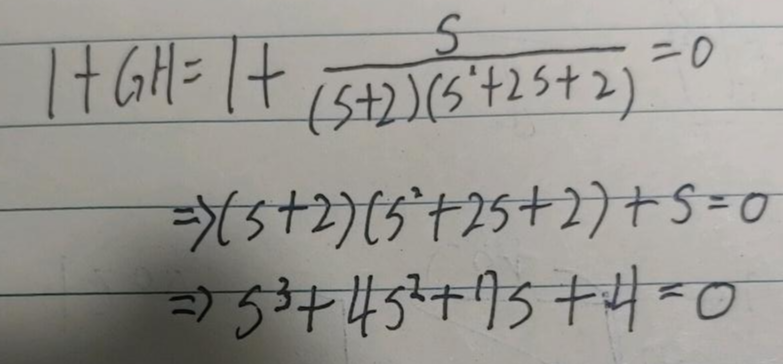 1+GH=1+ s/((s+2)(s²+2s+2)) =0
⇒(s+2)(s²+2s+2)+s=0
⇒ s³+4s²+7s+4=0